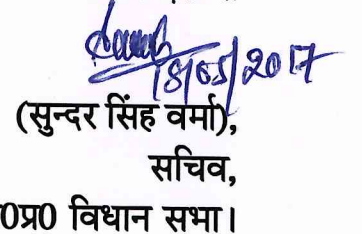 18/05/2017
(सुन्दर सिंह वर्मा),
सचिव,
0प्र0 विधान सभा।